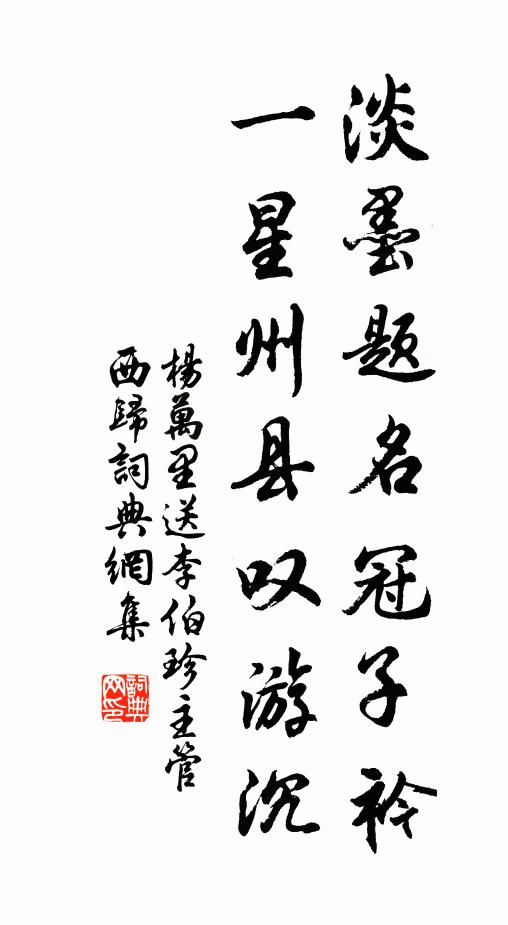 淡墨题名冠子衿
一星州县叹游沉
楊萬里送李伯珍主管
西歸詞典網集
詞典
网印